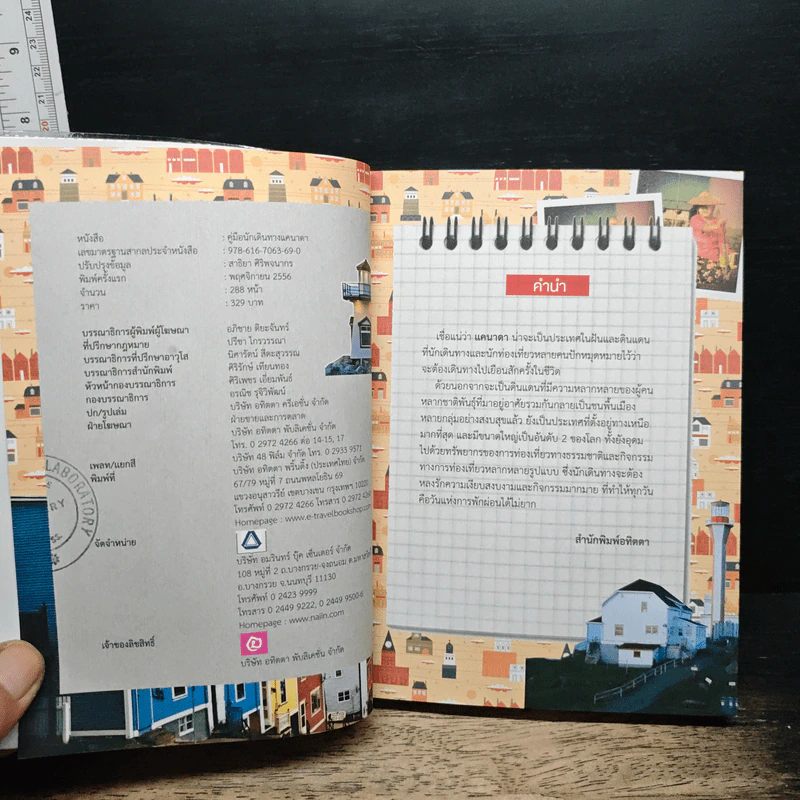 หนังสือ : คู่มือนักเดินทางแคนาดา
เลขมาตรฐานสากลประจำหนังสือ : 978-616-7063-69-0
ปรับปรุงข้อมูล : สาธิยา ศิริพจนากร
พิมพ์ครั้งแรก : พฤศจิกายน 2556
จำนวน : 288 หน้า
ราคา : 329 บาท
บรรณาธิการผู้พิมพ์ผู้โฆษณา อภิชาย ติยะจันทร์
ที่ปรึกษากฎหมาย ปรีชา ไกรวรรณา
บรรณาธิการที่ปรึกษาอาวุโส นิศารัตน์ สีตะสุวรรณ
บรรณาธิการสำนักพิมพ์ ศิริรักษ์ เทียนทอง
หัวหน้ากองบรรณาธิการ ศิริเพชร เอี่ยมพันธ์
กองบรรณาธิการ อรณิช รุจิวิพัฒน์
ปก/รูปเล่ม บริษัท อทิตตา ครีเอชั่น จำกัด
ฝ่ายโฆษณา ฝ่ายขายและการตลาด
บริษัท อทิตตา พับลิเคชั่น จำกัด
โทร. 0 2972 4266 ต่อ 14-15, 17
เพลท/แยกสี บริษัท 48 ฟิล์ม จำกัด โทร. 0 2933 9571
พิมพ์ที่ บริษัท อทิตตา พริ้นติ้ง (ประเทศไทย) จำกัด
67/79 หมู่ที่ 7 ถนนพหลโยธิน 69
แขวงอนุสาวรีย์ เขตบางเขน กรุงเทพฯ 10220
โทรศัพท์ 0 2972 4266 โทรสาร 0 2972 4266
Homepage : www.e-travelbookshop.com
จัดจำหน่าย
บริษัท อมรินทร์ บุ๊ค เซ็นเตอร์ จำกัด
108 หมู่ที่ 2 ถ.บางกรวย-จงถนอม
อ.บางกรวย จ.นนทบุรี 11130
โทรศัพท์ 0 2423 9999
โทรสาร 0 2449 9222, 0 2449 9500-6
Homepage : www.naiin.com
เจ้าของลิขสิทธิ์
บริษัท อทิตตา พับลิเคชั่น จำกัด
LABORATORY
คำนำ
เชื่อแน่ว่า แคนาดา น่าจะเป็นประเทศในฝันและดินแดน
ที่นักเดินทางและนักท่องเที่ยวหลายคนปักหมุดหมายไว้ว่า
จะต้องเดินทางไปเยือนสักครั้งในชีวิต
ด้วยนอกจากจะเป็นดินแดนที่มีความหลากหลายของผู้คน
หลากชาติพันธุ์ที่มาอยู่อาศัยรวมกันกลายเป็นชนพื้นเมือง
หลายกลุ่มอย่างสงบสุขแล้ว ยังเป็นประเทศที่ตั้งอยู่ทางเหนือ
มากที่สุด และมีขนาดใหญ่เป็นอันดับ 2 ของโลก ทั้งยังอุดม
ไปด้วยทรัพยากรของการท่องเที่ยวทางธรรมชาติและกิจกรรม
ทางการท่องเที่ยวหลากหลายรูปแบบ ซึ่งนักเดินทางจะต้อง
หลงรักความเงียบสงบงามและกิจกรรมมากมาย ที่ทำให้ทุกวัน
คือวันแห่งการพักผ่อนได้ไม่ยาก
สำนักพิมพ์อทิตตา
9
8
24
23
22
21
20